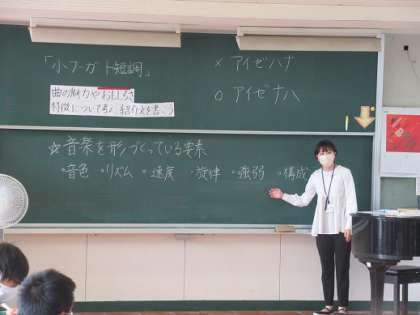 「小フーガト短調」
曲の魅力やおもしろさ
特徴について考え 紹介文を書こう
× アイゼハナ
○ アイゼナハ
☆音楽を形づくっている要素
・音色 ・リズム ・速度 ・旋律 ・強弱 ・構成